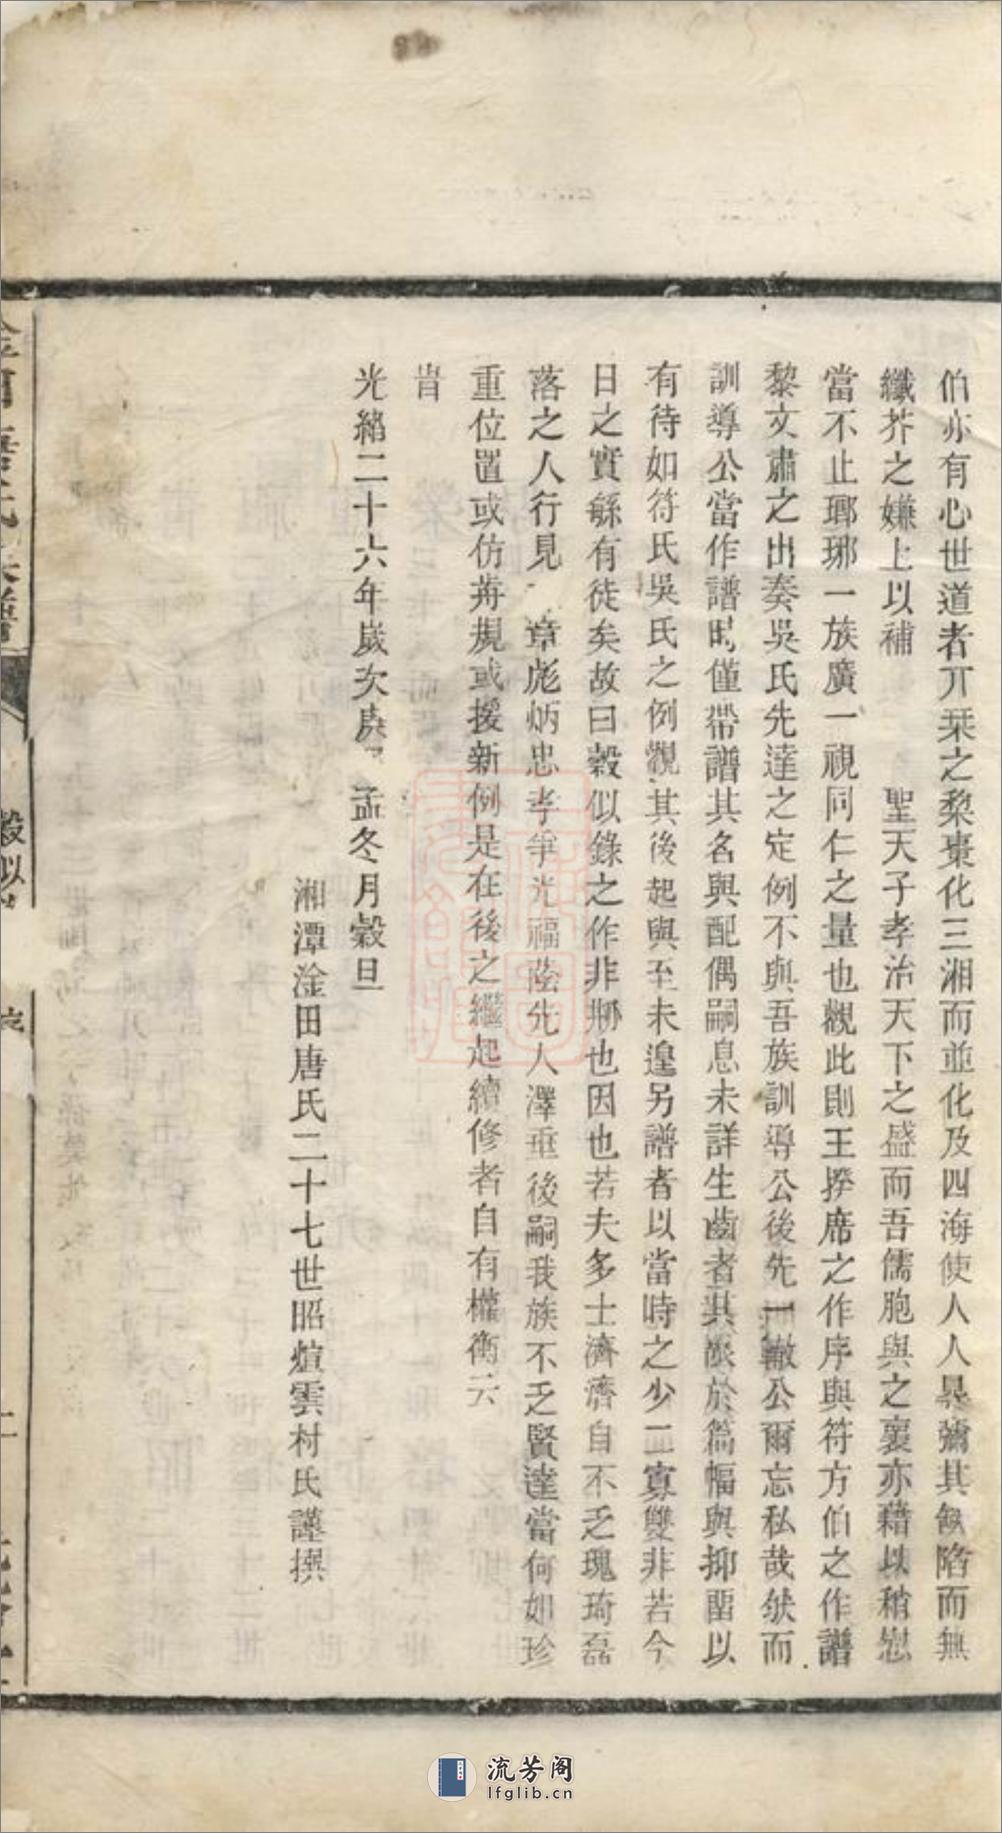 伯亦有心世道者丌栞之棃棗化三湘而並化及四海使人人暴彌其缺陷而無
纖芥之嫌上以補 聖天子孝治天下之盛而吾儒胞與之襄亦藉以稍慰
當不止瑯琊一族廣一視同仁之量也觀此則王揆席之作序與符方伯之作譜
黎文肅之出奏吳氏先達之定例不與吾族訓導公後先一轍公爾忘私哉然而
訓導公當作譜時僅帶譜其名與配偶嗣息未詳生齒者其限於篇幅與抑留以
有待如符氏吳氏之例觀其後起與至未遑另譜者以當時之少二寡雙非若今
日之實繇有徒矣故曰穀似錄之作非刱也因也若夫多士濟濟自不乏瑰琦磊
落之人行見 章彪炳忠孝爭光福蔭先人澤垂後嗣我族不乏賢達當何如珍
重位置或仿舊規或援新例是在後之繼起續修者自有權衡云
旹
光緒二十六年歲次庚 孟冬月穀旦
湘潭淦田唐氏二十七世昭煊雲村氏謹撰
唐氏族譜
穀似
序
二
流芳阁
lfglib.cn